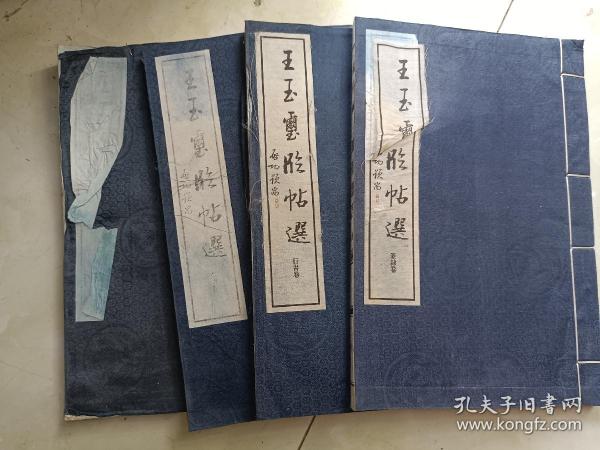 王玉璽臨帖選
王玉璽臨帖選
启功题签
行書卷
王玉璽臨帖選
篆隸卷
孔夫子旧书网
www.kongfz.com